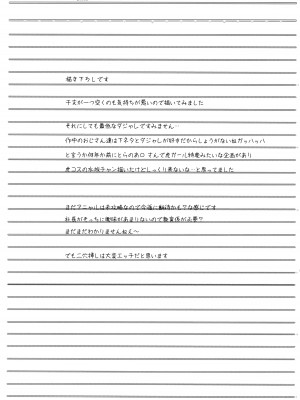 描き下ろしです
干支が一つ空くのも気持ちが悪いので描いてみました
それにしても最低なダジャレですみません…
作中のおじさん達は下ネタとダジャレが好きだからしょうがないねガッハッハ
と言うか何年か前にとらのあ□さんで虎ガール特集みたいな企画があり
虎コスの水城チャン描いたけどしっくり来ないな…と思ってました
まだアニャルは未攻略なので今後に期待かも?な感じです
社長がそっちに興味があまりないので教育係が必要?
まだまだわかりませんねぇ〜
でも二穴挿しは大変エッチだと思います